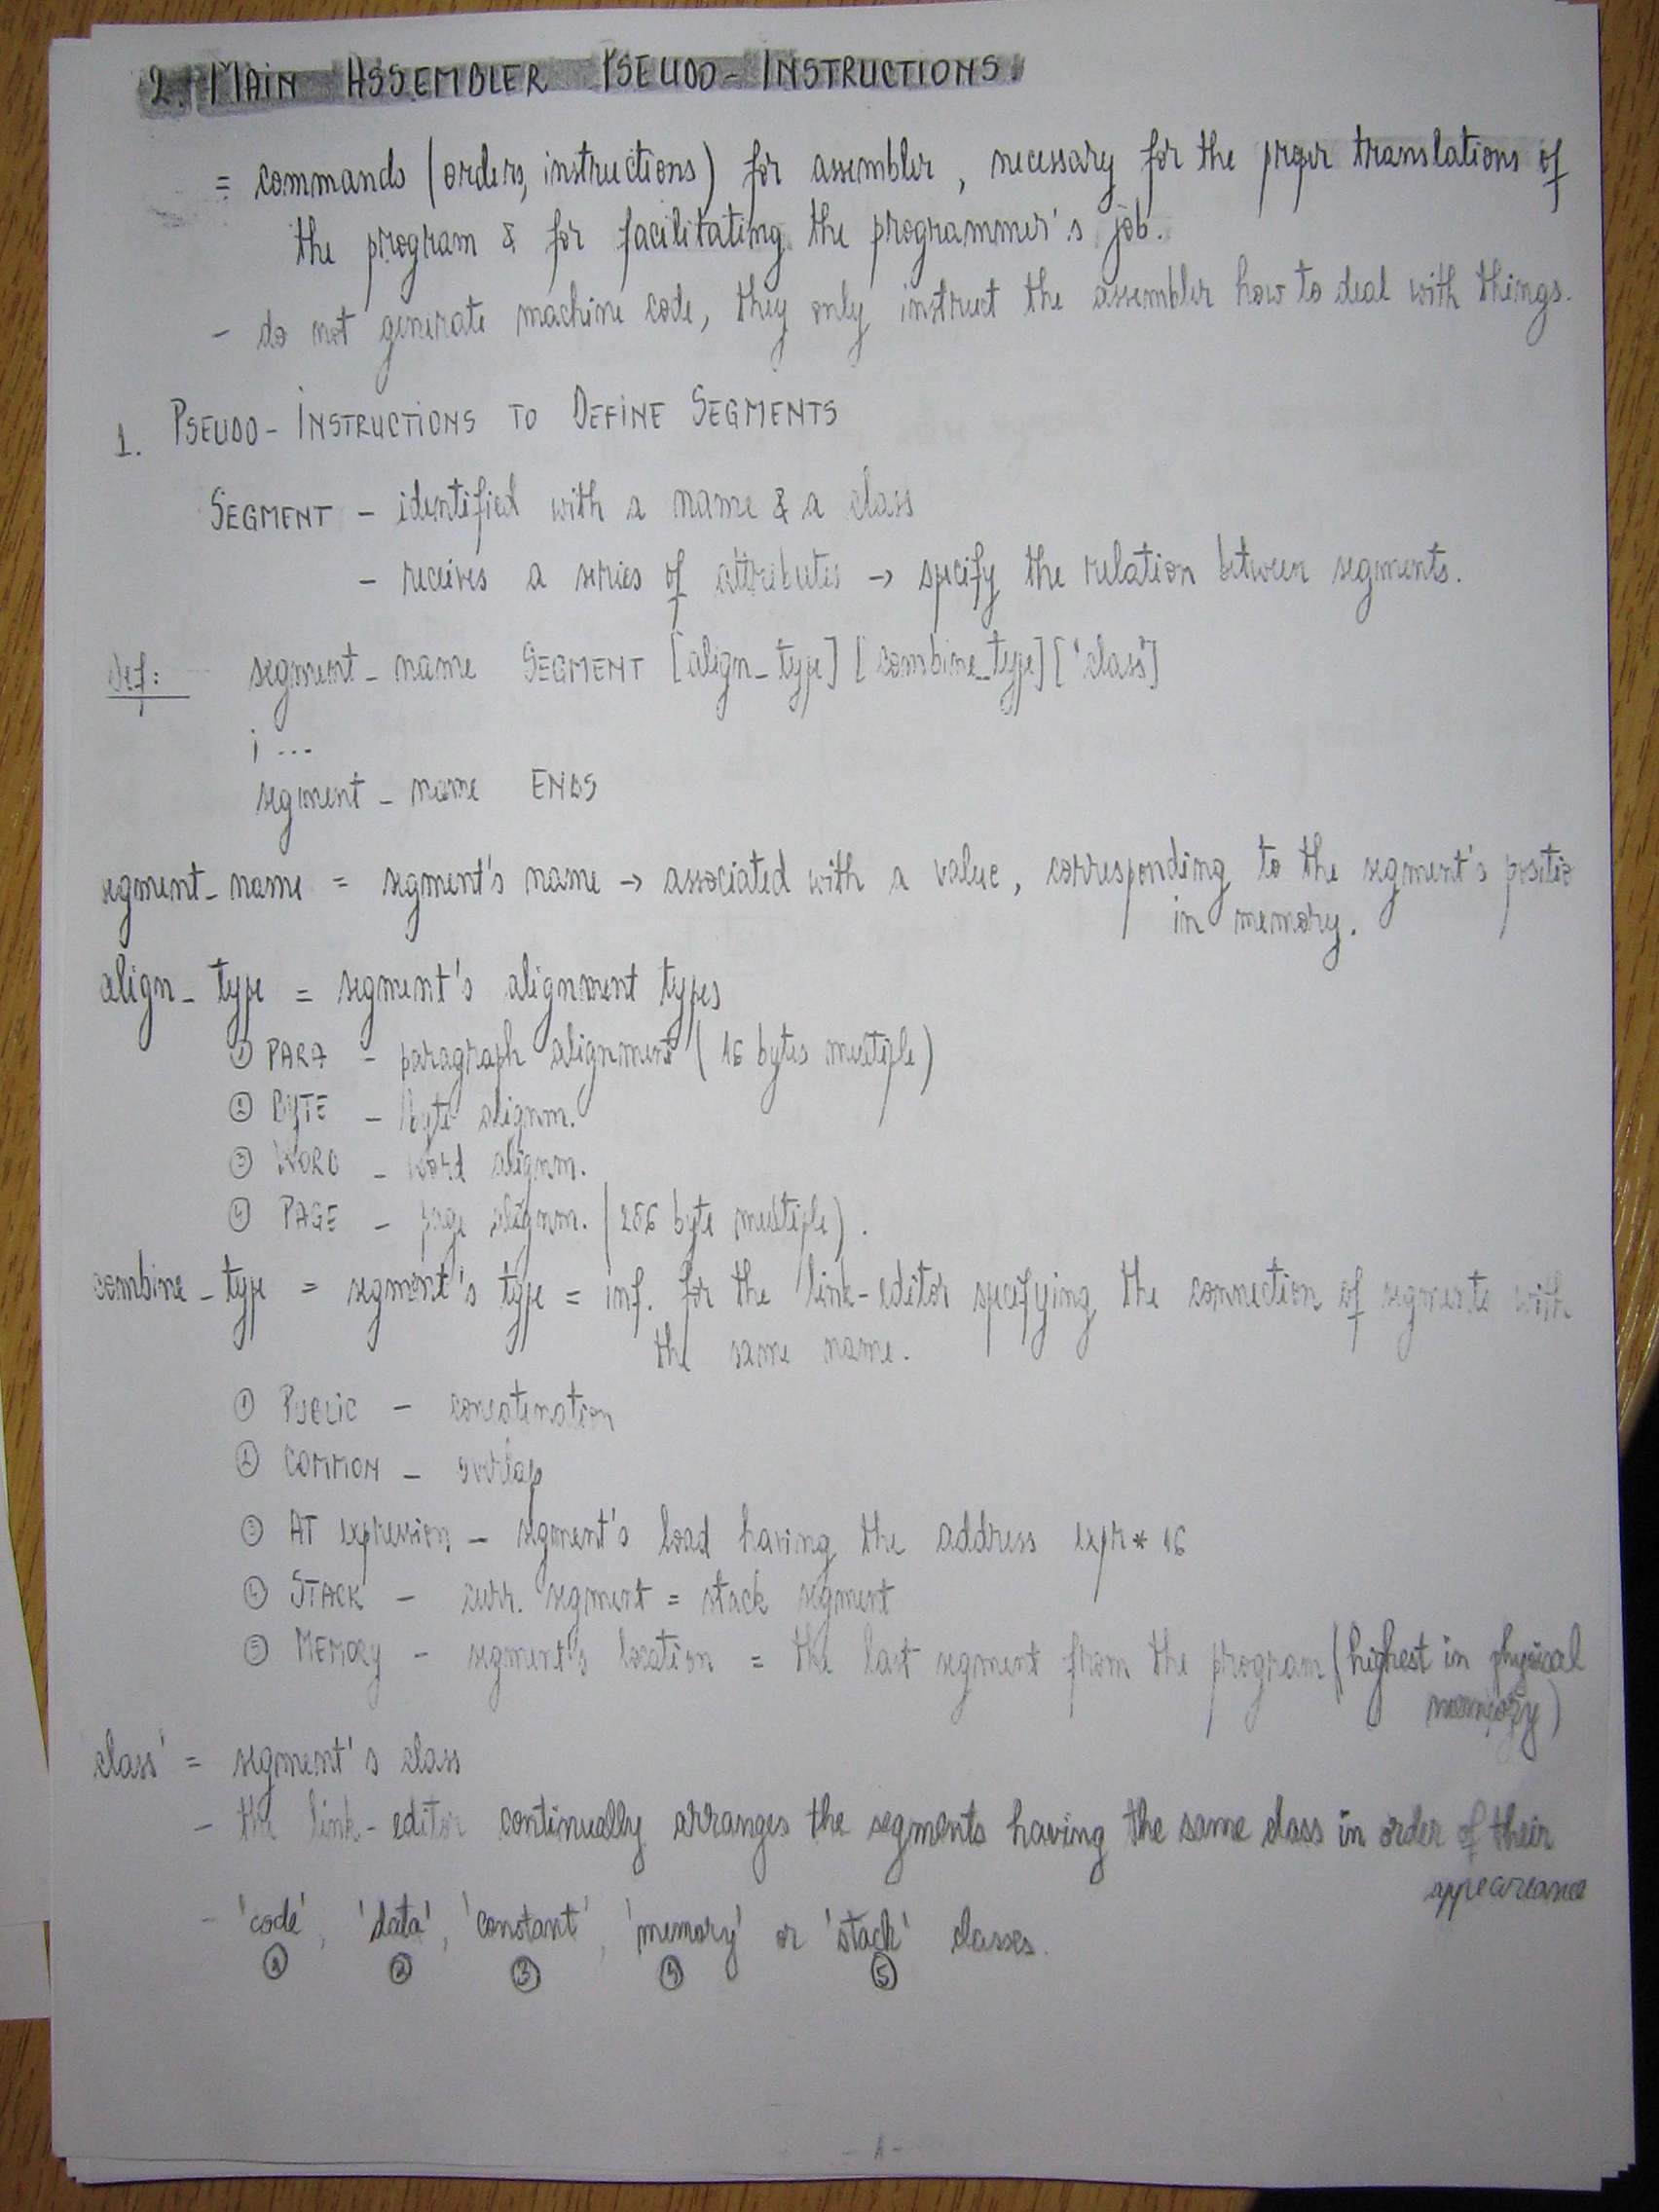 2. MAIN ASSEMBLER PSEUDO-INSTRUCTIONS.
= commands (orders, instructions) for assembler, necessary for the proper translations of
the program & for facilitating the programmer's job.
- do not generate machine code, they only instruct the assembler how to deal with things.
1. PSEUDO-INSTRUCTIONS TO DEFINE SEGMENTS
SEGMENT - identified with a name & a class
- receives a series of attributes → specify the relation between segments.
def: segment_name SEGMENT [align_type] [combine_type] ['class']
; ...
segment_name ENDS
segment_name = segment's name → associated with a value, corresponding to the segment's positio
in memory.
align_type = segment's alignment types
① PARA - paragraph alignment (16 bytes multiple)
② BYTE - byte alignm.
③ WORD - word alignm.
④ PAGE - page alignm. (256 byte multiple).
combine_type = segment's type = inf. for the link-editor specifying the connection of segments with
the same name.
① PUBLIC - concatenation
② COMMON - overlap
③ AT expression - segment's load having the address expr * 16
④ STACK - curr. segment = stack segment
⑤ MEMORY - segment's location = the last segment from the program (highest in physical
memory)
class' = segment's class
- the link-editor continually arranges the segments having the same class in order of their
appeareance
- 'code', 'data', 'constant', 'memory' or 'stack' classes.
① ② ③ ④ ⑤